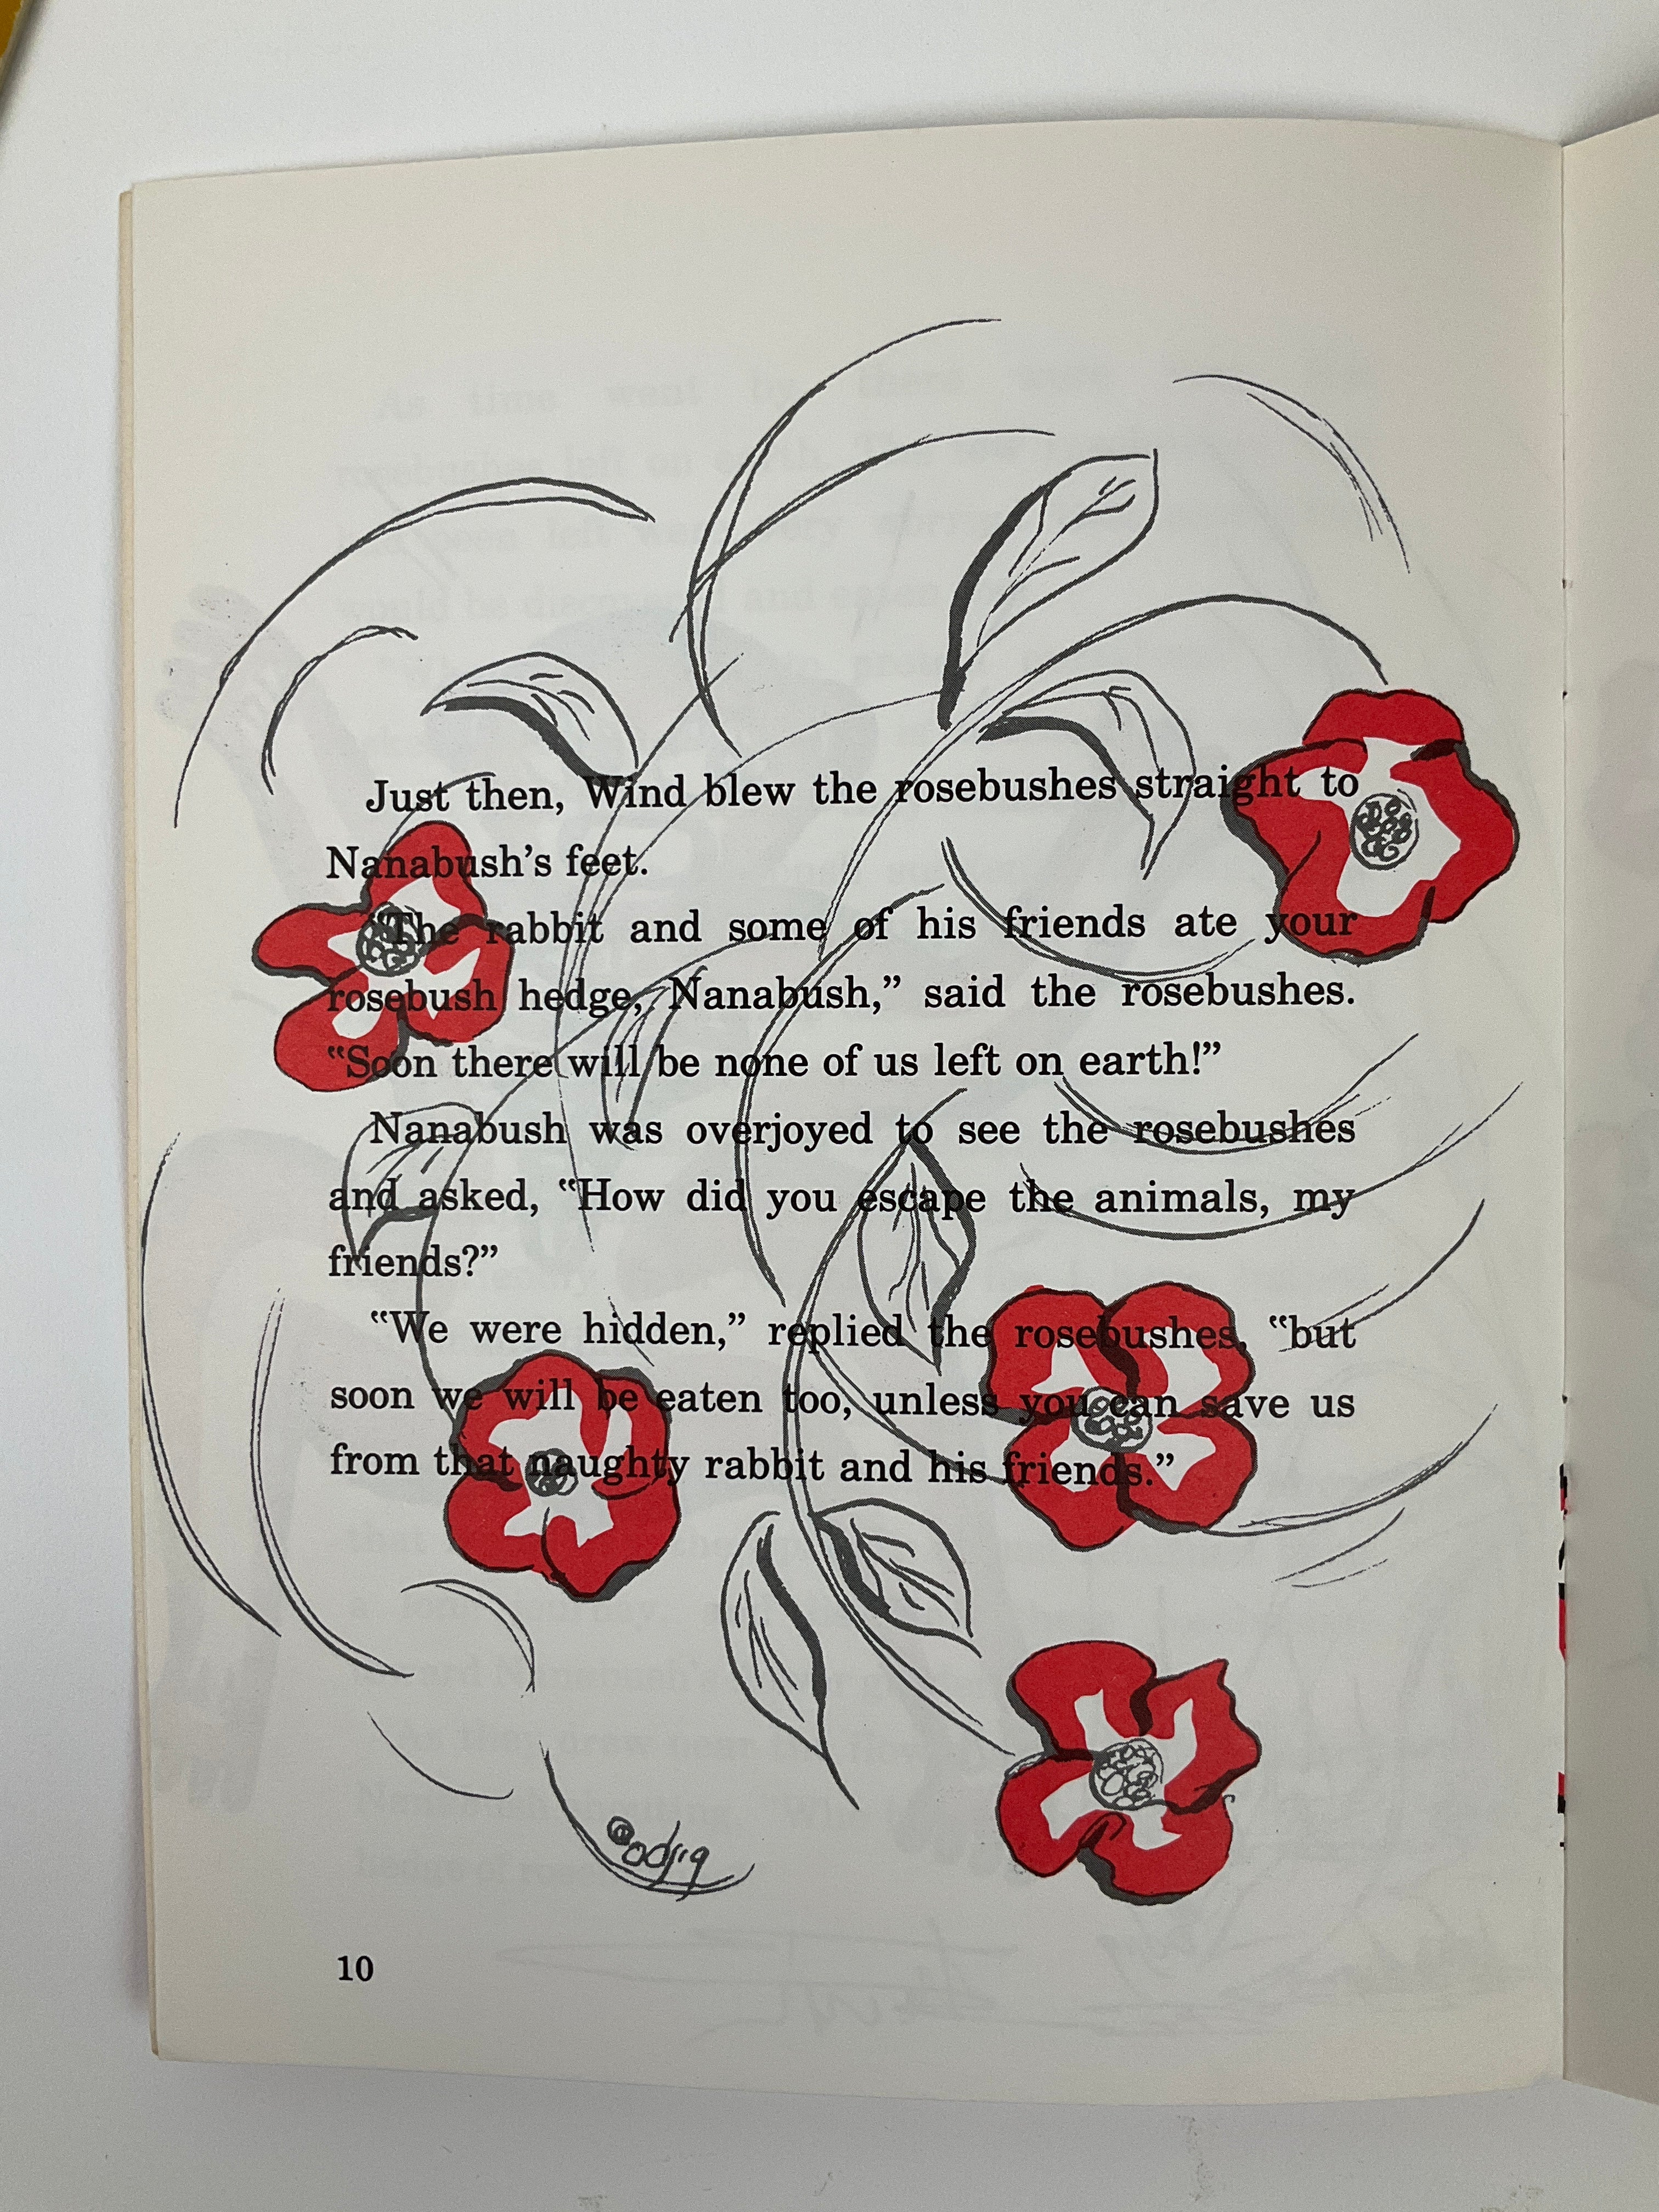 Just then, Wind blew the rosebushes straight to
Nanabush's feet.
"The rabbit and some of his friends ate your
rosebush hedge, Nanabush," said the rosebushes.
"Soon there will be none of us left on earth!"
Nanabush was overjoyed to see the rosebushes
and asked, "How did you escape the animals, my
friends?"
"We were hidden," replied the rosebushes, "but
soon we will be eaten too, unless you can save us
from that naughty rabbit and his friends."
odjig
10